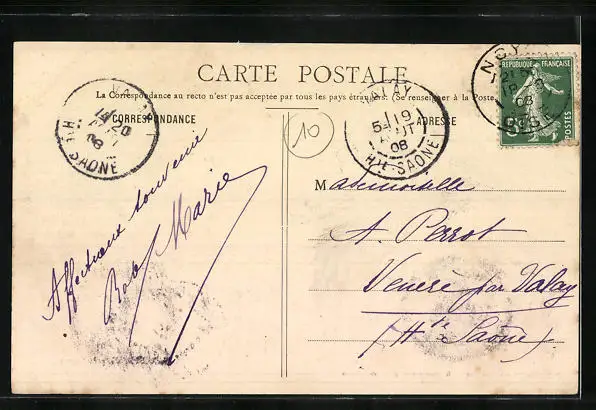 CARTE POSTALE
La Correspondance au recto n'est pas acceptée par tous les pays étrangers. (Se renseigner à la Poste
CORRESPONDANCE
ADRESSE
RÉPUBLIQUE FRANÇAISE
POSTES
NOY
08
14 20
08
Hte SAONE
VALAY
5 19
AOUT
08
Hte SAONE
10
Affectueux souvenir
Marie
Mademoiselle
A. Perrot
Venere par Valay
(Hte Saône)